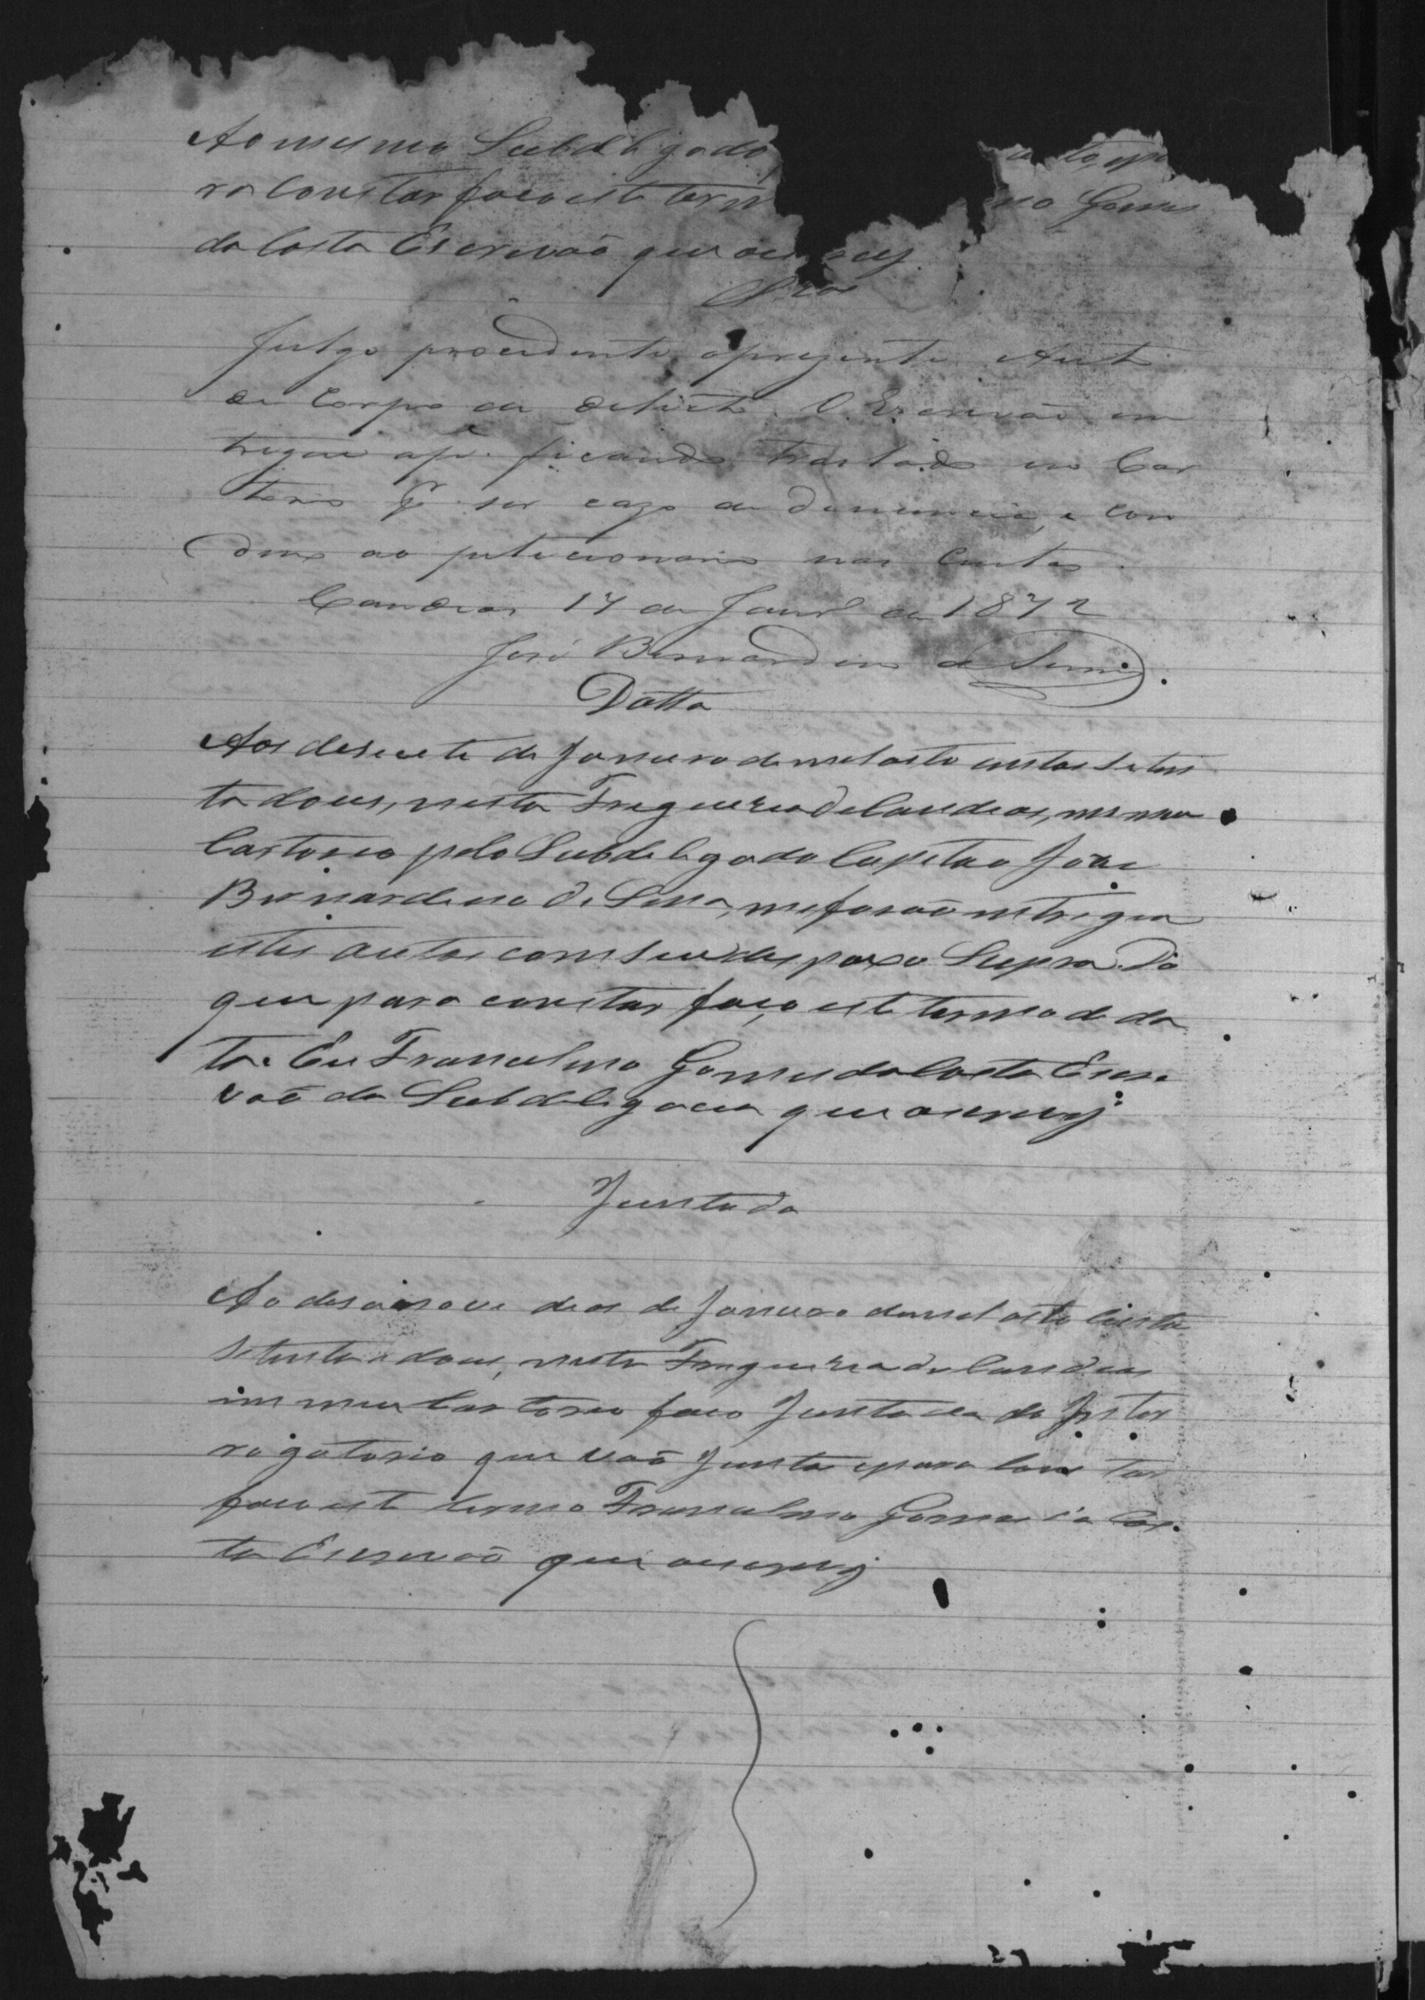 Ao mesmo Subdelegado
ra Constar faço este term no Gomes
da Costa Escrivaõ que oescrevy
Julgo procedente apresente Auto
de Corpo de delicto. O Escrivaõ en
tregue ficando traslado em Car
torio ser cazo de denuncia, e con
dino ao peticionario nas Custas.
Candeas 17 de Janrº de 1872
José Bernardino de Senna
Datta
Aos desecete de Janeiro de mil oito centos seten
ta dous, nesta Freguezia de Candeas, em meu
Cartorio pelo Subdelegado Capitaõ José
Bernardeno de Sena, me foraõ entregue
estes autos com seu despaxo Supra. Do
que para constar faço este termo de da
ta. Eu Francelino Gomes da Costa Escri
vaõ da Subdelegacia que oescrevy
Juntada
Ao desanove dias de Janeiro demil oito centos
Setenta e dous, nesta Freguezia de Candeas
em meu Cartorio faço Juntada do Inter
rogatorio que vaõ Junto epara Cons tar
faço este termo Francelino Gomes da Cos
ta Escrivaõ que oescrevy